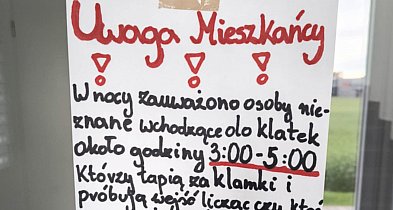 Uwaga Mieszkańcy
! ! !
W nocy zauważono osoby nie-
znane wchodzące do klatek
około godziny 3:00-5:00
Którzy łapią za klamki i
próbują wejść licząc czy ktoś